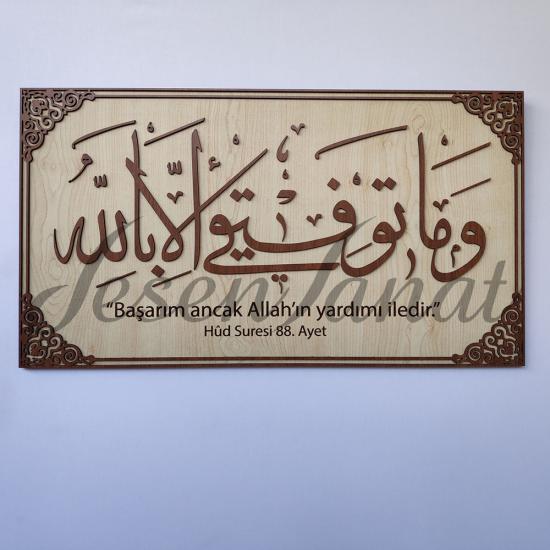 وَمَا تَوْفِيقِي إِلَّا بِاللّٰهِ
"Başarım ancak Allah'ın yardımı iledir."
Hûd Suresi 88. Ayet
JesenSanat